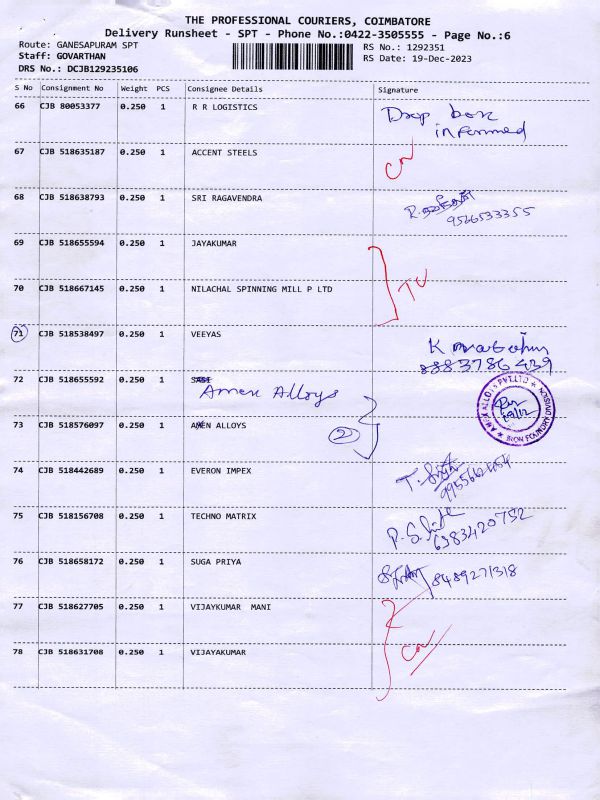 THE PROFESSIONAL COURIERS, COIMBATORE
Delivery Runsheet - SPT - Phone No.:0422-3505555 - Page No.:6
Route: GANESAPURAM SPT RS No.: 1292351
Staff: GOVARTHAN RS Date: 19-Dec-2023
DRS No.: DCJB129235106
S No Consignment No Weight PCS Consignee Details Signature
66 CJB 80053377 0.250 1 R R LOGISTICS Drop box
informed
67 CJB 518635187 0.250 1 ACCENT STEELS
68 CJB 518638793 0.250 1 SRI RAGAVENDRA
9566533355
69 CJB 518655594 0.250 1 JAYAKUMAR
70 CJB 518667145 0.250 1 NILACHAL SPINNING MILL P LTD
71 CJB 518538497 0.250 1 VEEYAS
8883786439
72 CJB 518655592 0.250 1
Amex Alloys
73 CJB 518576097 0.250 1 ALLOYS 2
74 CJB 518442689 0.250 1 EVERON IMPEX
75 CJB 518156708 0.250 1 TECHNO MATRIX
76 CJB 518658172 0.250 1 SUGA PRIYA 8489271318
77 CJB 518627705 0.250 1 VIJAYKUMAR MANI
78 CJB 518631708 0.250 1 VIJAYAKUMAR